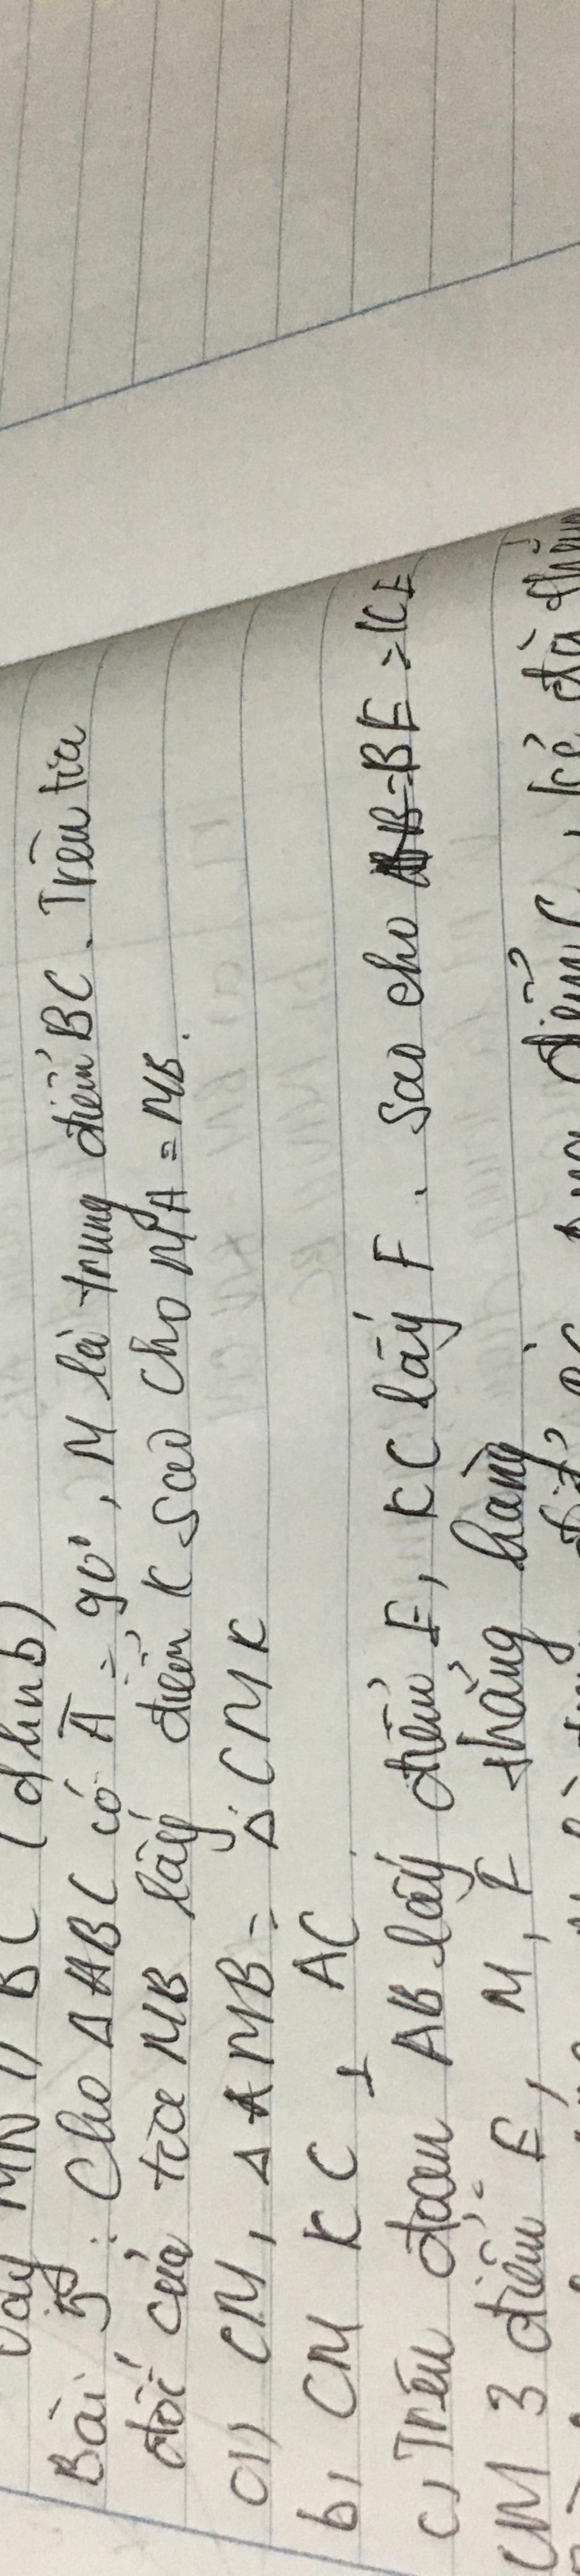 Vậy MN // BC (đhnb)
Bài 5: Cho △ABC có A = 90°, M là trung điểm BC. Trên tia
đối của tia MB lấy điểm K sao cho MA = MB.
a) CM, △AMB = △CMK
b, CM KC ⊥ AC
c, Trên đoạn AB lấy điểm E, KC lấy F. sao cho BE = KF
CM 3 điểm E, M, F thẳng hàng
điểm C, kẻ